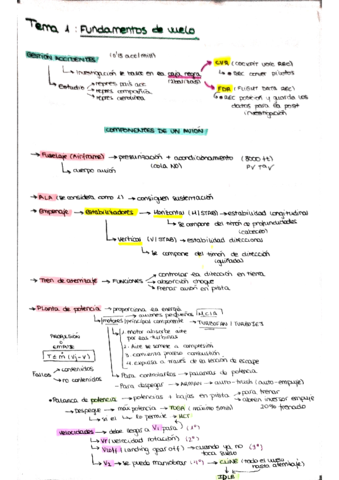 Tema 1: Fundamentos de vuelo
GESTIÓN ACCIDENTES (0'15 acc/mill)
→ Investigación se basa en la caja negra
→ Estudio
→ repres. compañía
→ repres. aeronave
CVR (COCKPIT VOICE REC)
→ REC conver pilotos
FDR (FLIGHT DATA REC)
→ REC posicion y guarda los datos para la post investigación
COMPONENTES DE UN AVIÓN:
→ Fuselaje (Airframe) → presurización + acondicionamiento (8000 ft)
→ cuerpo avión (cola NO)
→ ALA (se considera como 1) → consiguen sustentación
→ Empenaje → Estabilizadores → Horizontal (HSTAB) → estabilidad longitudinal
→ se compone del timón de profundidades (cabeceo)
→ Vertical (VSTAB) → estabilidad direccional
→ se compone del timón de dirección (guiñada)
→ Tren de aterrizaje → FUNCIONES
→ controlar la dirección en tierra
→ absorción choque
→ frenar avión en pista
→ Planta de potencia → proporciona la energía
→ motores (principal componente → TURBOFAN / TURBOJETS
PROPULSIÓN
1. motor absorbe aire por las turbinas
2. Aire se somete a compresión
3. comienza proceso combustión
4. expulsa a través de la sección de escape
Fallos
→ contenidos
→ no contenidos
→ Para controlarlos → palanca de potencia
→ Para despegar → auto-thrust (auto-empuje)
→ Palanca de potencia → potencias + bajas en pista
→ para frenar
→ abren inversor empuje
20% frenado
→ Despegue → max potencia → TOGA (máximo 5min)
→ si el lo permite → MCT
→ Velocidades → debe llegar a V1 para (1º)
→ Vr (velocidad rotación) (2º)
→ (landing gear off) → cuando ya no toca suelo (3º)
→ V2 → se puede maniobrar (4º) → CLIMB (todo el vuelo hasta aterrizaje)
IDLE